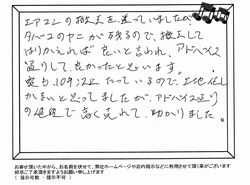 エアコンの撤去を迷っていましたが
タバコのヤニが残るので、撤去して
はりかえれば良いと言われ、アドバイス
通りして、良かったと思います。
築も、10年以上たっているので、土地価
かなぁと思ってましたが、アドバイス通り
の値段で高く売れて、助かりました。
お寄せ頂いた中から、お名前を伏せて、弊社ホームページや店内掲示などに利用させて頂く事がございます
何卒ご了承頂きますようお願い申し上げます
( 提示可能 ・ 提示不可 )